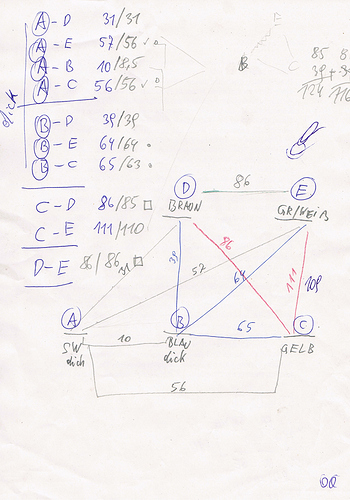 A - D 31/31
A - E 57/56
A - B 10/8,5
A - C 56/56
dick
B - D 39/39
B - E 64/64
B - C 65/63
C - D 86/85
C - E 111/110
D - E 86/86
E
B
C
85
124 116
D 86 E
BRAUN GR/WEIß
86
39
57
64
111 109
A B C
10
65
SW BLAU GELB
dich dick
56